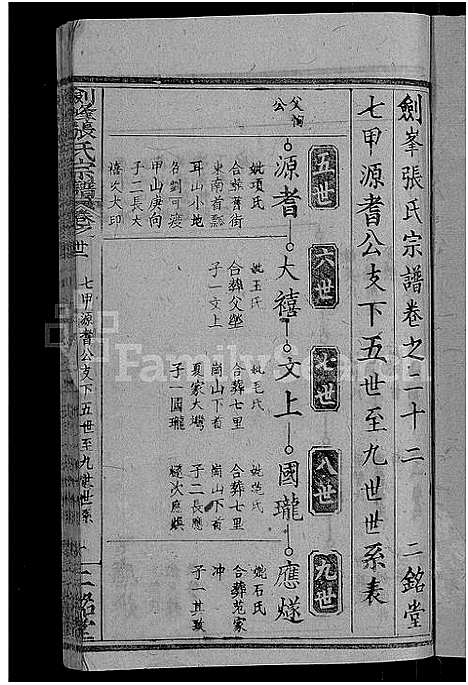 劍峯張氏宗譜卷之二十二 二銘堂
七甲源耆公支下五世至九世世系表
五世 六世 七世 八世 九世
父恫公
源耆 大禧 文上 國瓏 應燧
妣項氏
合葬舊街
東南首瓢
耳山小地
名劉可凌
甲山庚向
子二長大
禧次大印
妣王氏
合葬父塋
子一文上
妣毛氏
合葬七里
崗山下首
夏家大塆
子一國瓏
妣范氏
合葬七里
崗山下首
子二長應
燧次應
妣石氏
合葬范家
冲
子一其
劍峯張氏宗譜卷之廿二
七甲源耆公支下五世至九世世系 一
二銘堂
FamilySearch